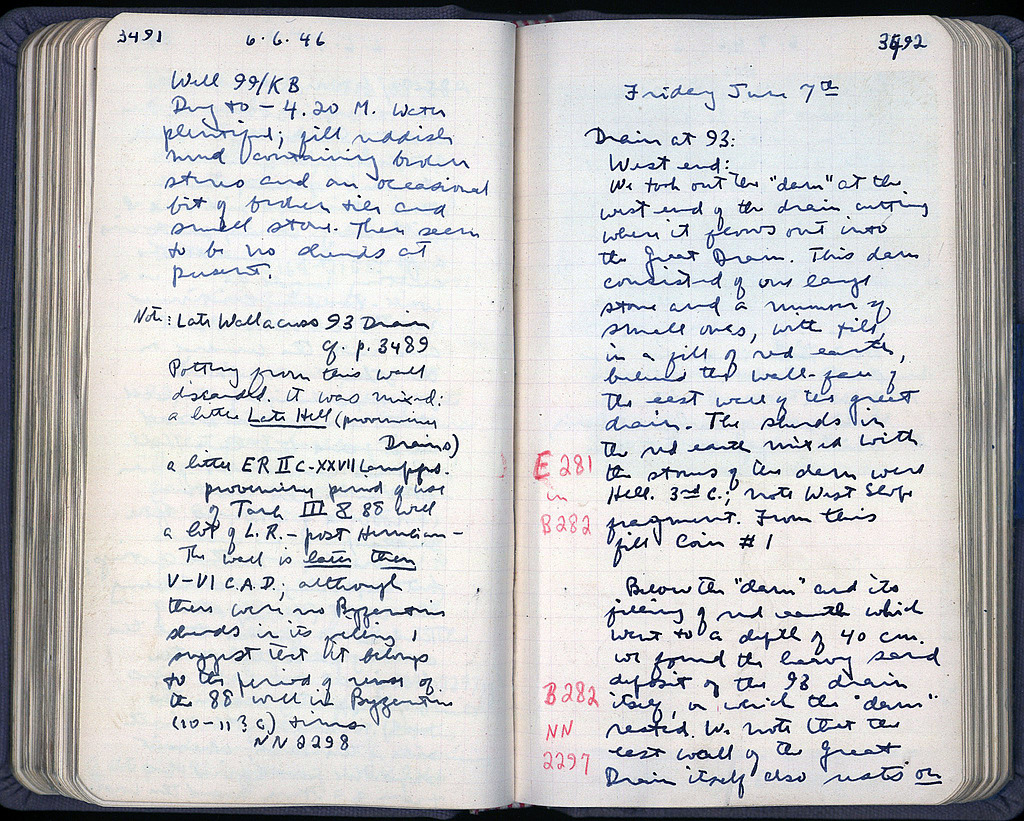 3491
6.6.46
Well 99/KB
Dug to - 4.20 M. Water
plentiful; fill reddish
mud containing broken
stones and an occasional
bit of broken tile and
small stone. There seem
to be no sherds at
present.
Note: Late Wall across 93 Drain
cf. p. 3489
Pottery from this wall
discarded. It was mixed:
a little Late Hell (provenience
Drains)
a little ER II C-XXVII Lamp frgs.
provenience period of use
of Tank III & 88 well
a lot of L.R. - post Herulian -
The wall is later than
V-VI C. A.D.; although
there were no Byzantine
sherds in its filling I
suggest that it belongs
to the period of reuse of
the 88 well in Byzantine
(10-11? C) times
NN 2298
3492
Friday June 7th
Drain at 93:
West end:
We took out the "dam" at the
west end of the drain cutting
where it flows out into
the Great Drain. This dam
consisted of one large
stone and a number of
small ones, with tile,
in a fill of red earth,
behind the wall-face of
the east wall of the great
drain. The sherds in
the red earth mixed with
the stones of the dam were
Hell. 3rd c.; note West Slope
fragment. From this
fill Coin #1
E 281
in
B 282
Below the "dam" and its
filling of red earth which
went to a depth of 40 cm.
we found the heavy sand
deposit of the 93 drain
itself, on which the "dam"
rested. We note that the
east wall of the Great
Drain itself also rests on
B 282
NN
2297